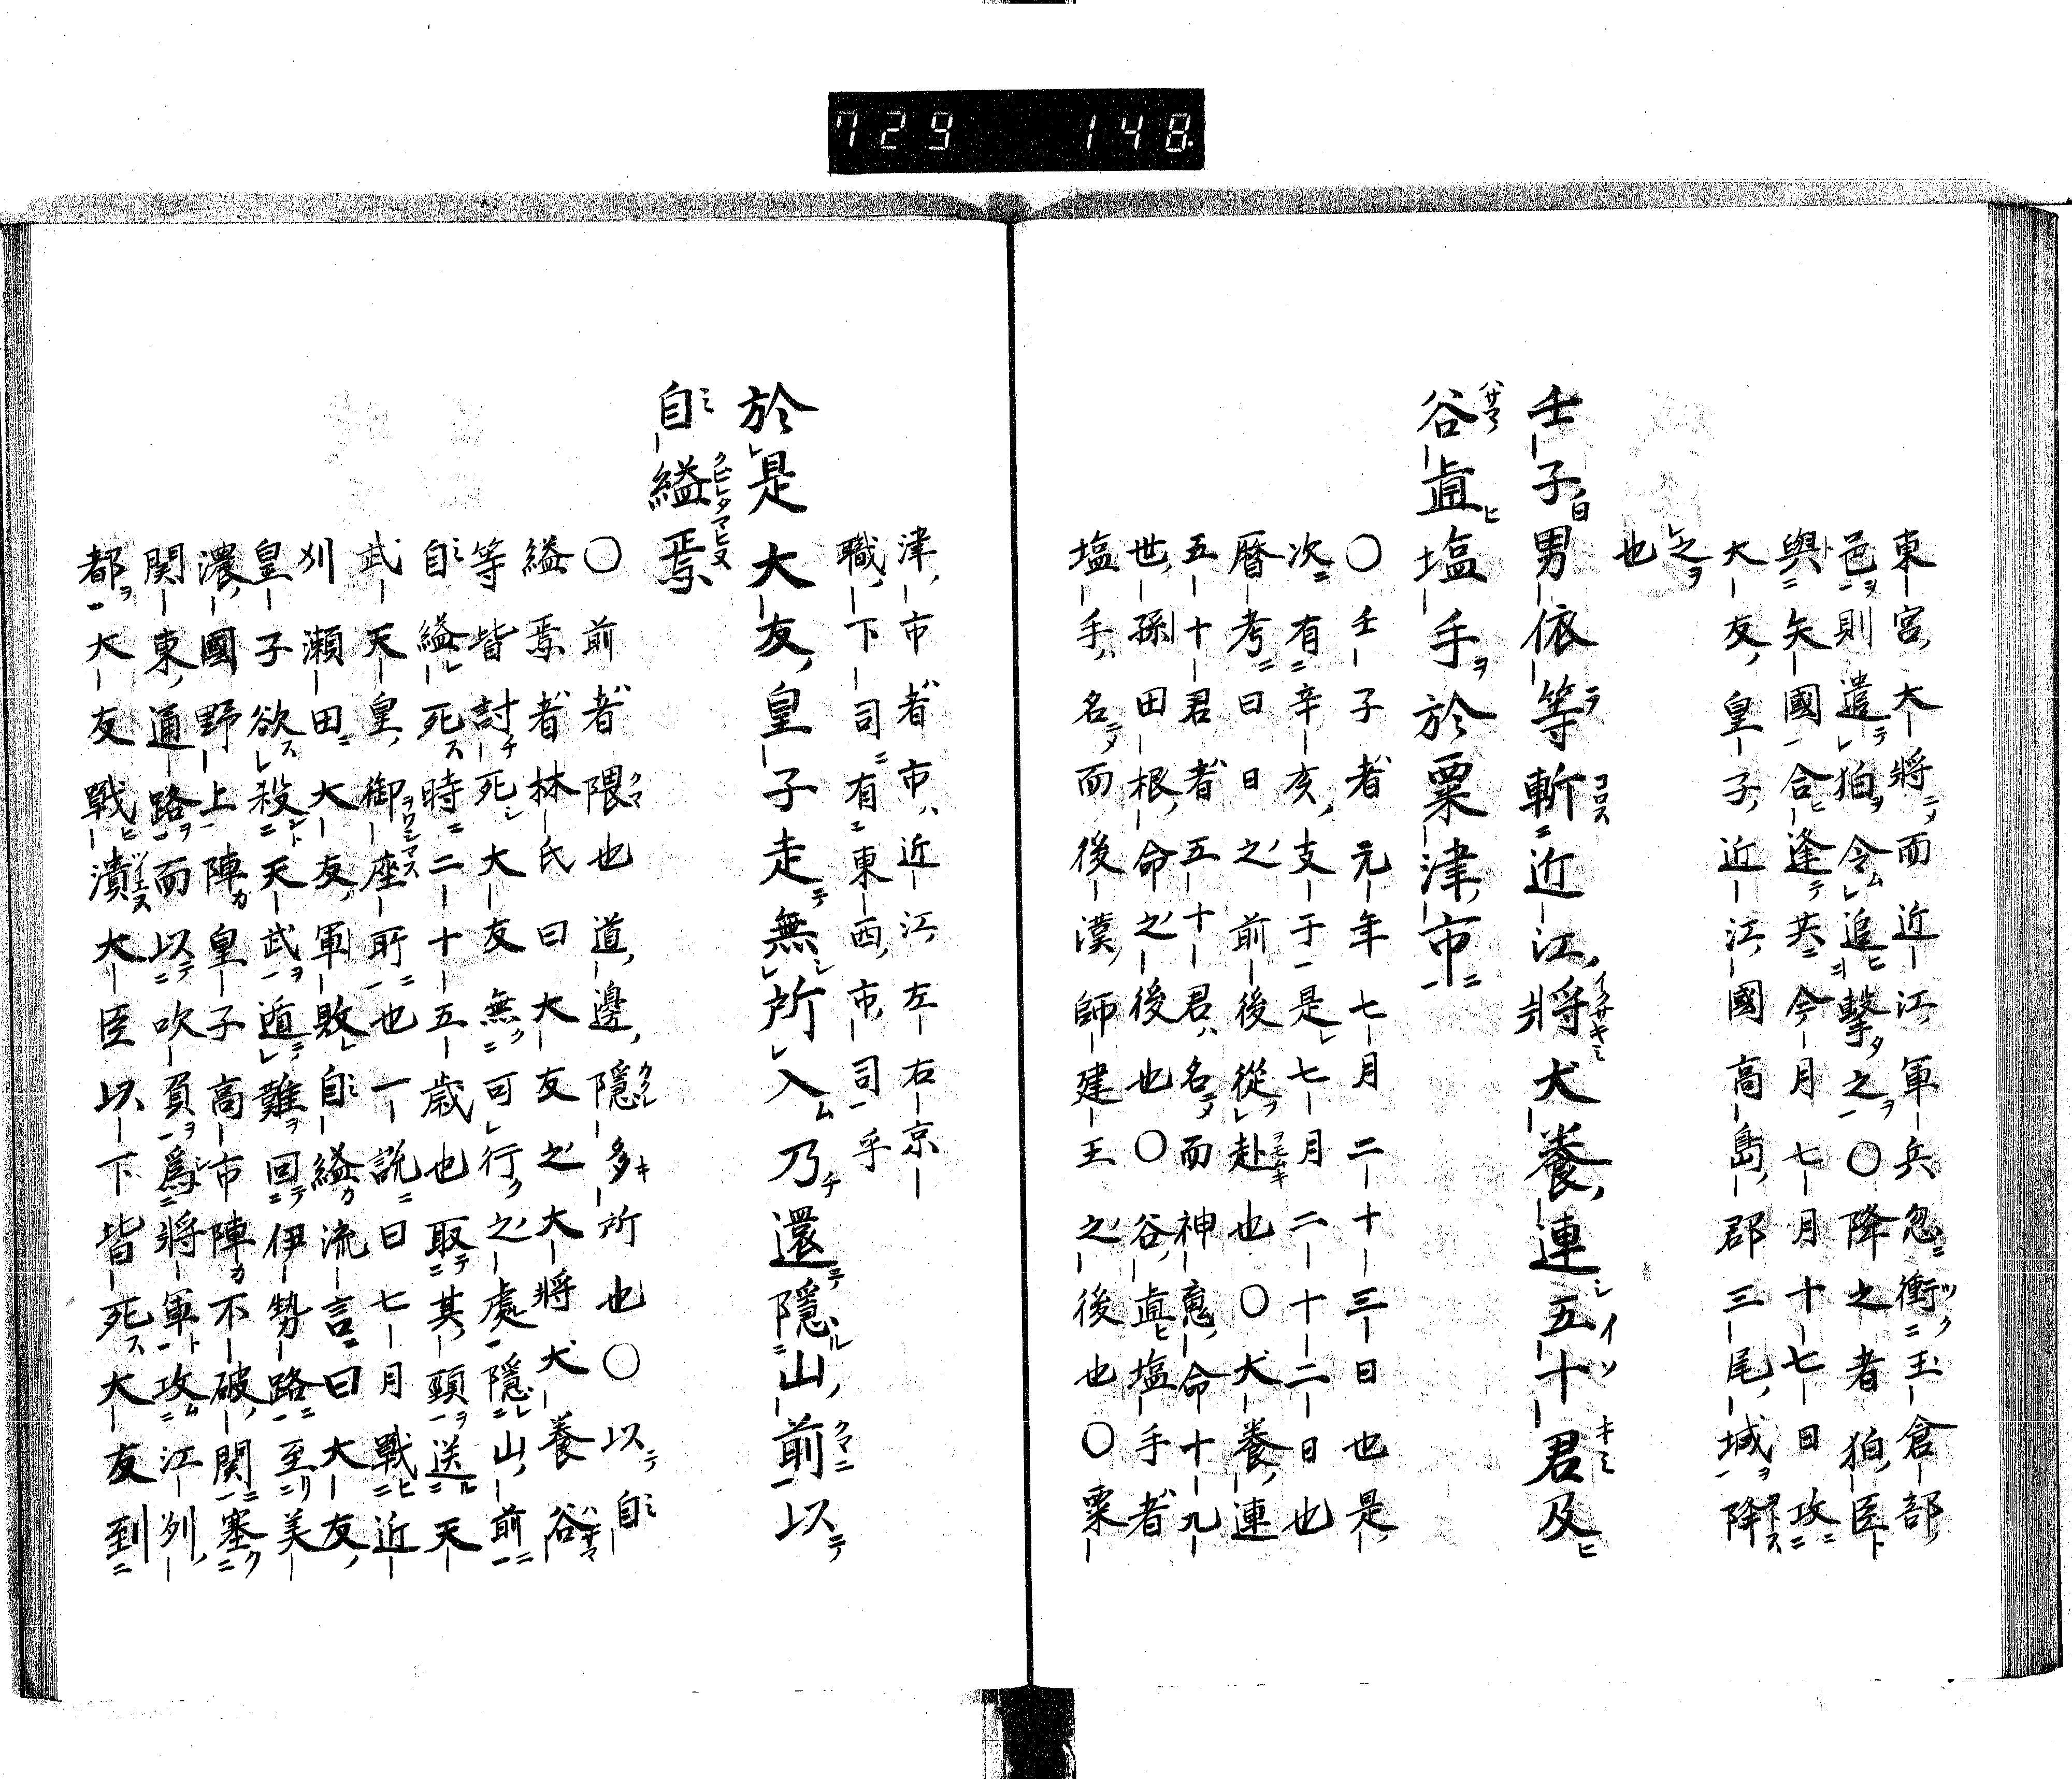 729 148
東宮大將而近江軍兵忽衝玉倉部
邑則遣狛令追擊之〇降之者狛臣
與矢國合逢共今月七月十七日攻
大友皇子近江國高島郡三尾城降
之
也
壬子男依等斬近江將犬養連五十君及
谷直塩手於粟津市
〇壬子者元年七月二十三日也是
次有辛亥支于是七月二十二日也
曆考曰日之前後從赴也〇犬養連
五十君者五十君名而神䰟命十九
世孫田根命之後也〇谷直塩手者
塩手名而後漢師建王之後也〇粟
津市者市近江左右京
職下司有東西市司乎
於是大友皇子走無所入乃還隱山前以
自縊焉
〇前者隈也道邊隱多所也〇以自
縊焉者林氏曰大友之大將犬養谷
等皆討死大友無可行之處隱山前
自縊死時二十五歲也取其頸送天
武天皇御座所也一說曰七月戰近
刕瀨田大友軍敗自縊流言曰大友
皇子欲殺天武遁難回伊勢路至美
濃國野上陣皇子高市陣不破關塞
関東通路而以吹負爲將軍攻江列
都大友戰潰大臣以下皆死大友到